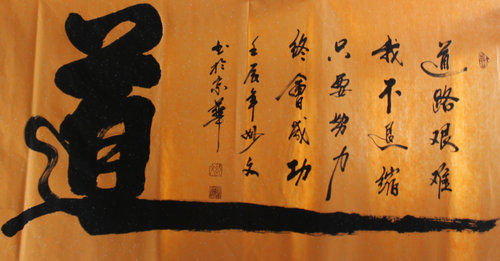 道路艰难
我不退缩
只要努力
终會成功
壬辰年妙文
书於京華
道